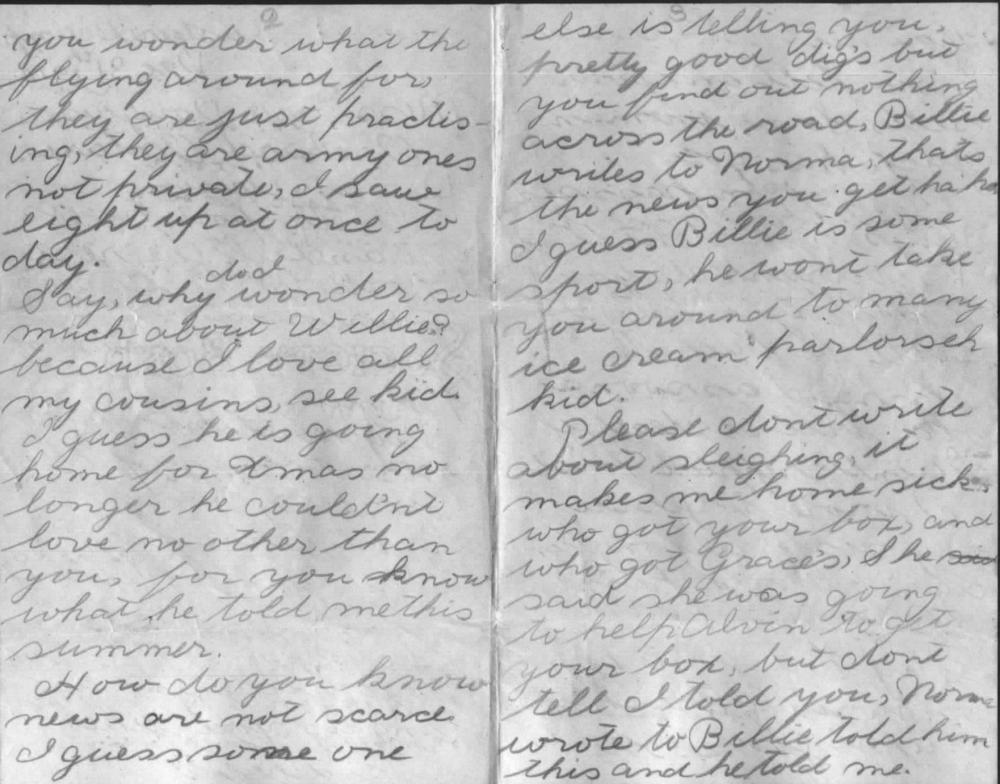 2
you wonder what the
flying around for,
they are just practis-
ing, they are army ones
not private, I saw
eight up at once to
day.
dod
Say, why wonder so
much about Willie?
because I love all
my cousins, see kid.
I guess he is going
home for Xmas no
longer he couldn't
love no other than
you, for you know
what he told me this
summer.
How do you know
news are not scarce
I guess some one
3
else is telling you.
pretty good dig's but
you find out nothing
across the road, Billie
writes to Norma, thats
the news you get ha ha
I guess Billie is some
sport, he wont take
you around to many
ice cream parlors eh
kid.
Please dont write
about sleighing, it
makes me home sick.
who got your box, and
who got Grace's, She
said she was going
to help Alvin to get
your box, but dont
tell I told you, Norma
wrote to Billie told him
this and he told me.